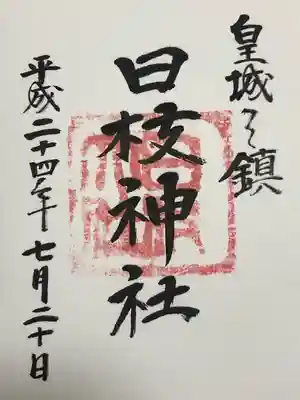 皇城之鎮
日枝神社
平成二十四年七月二十日